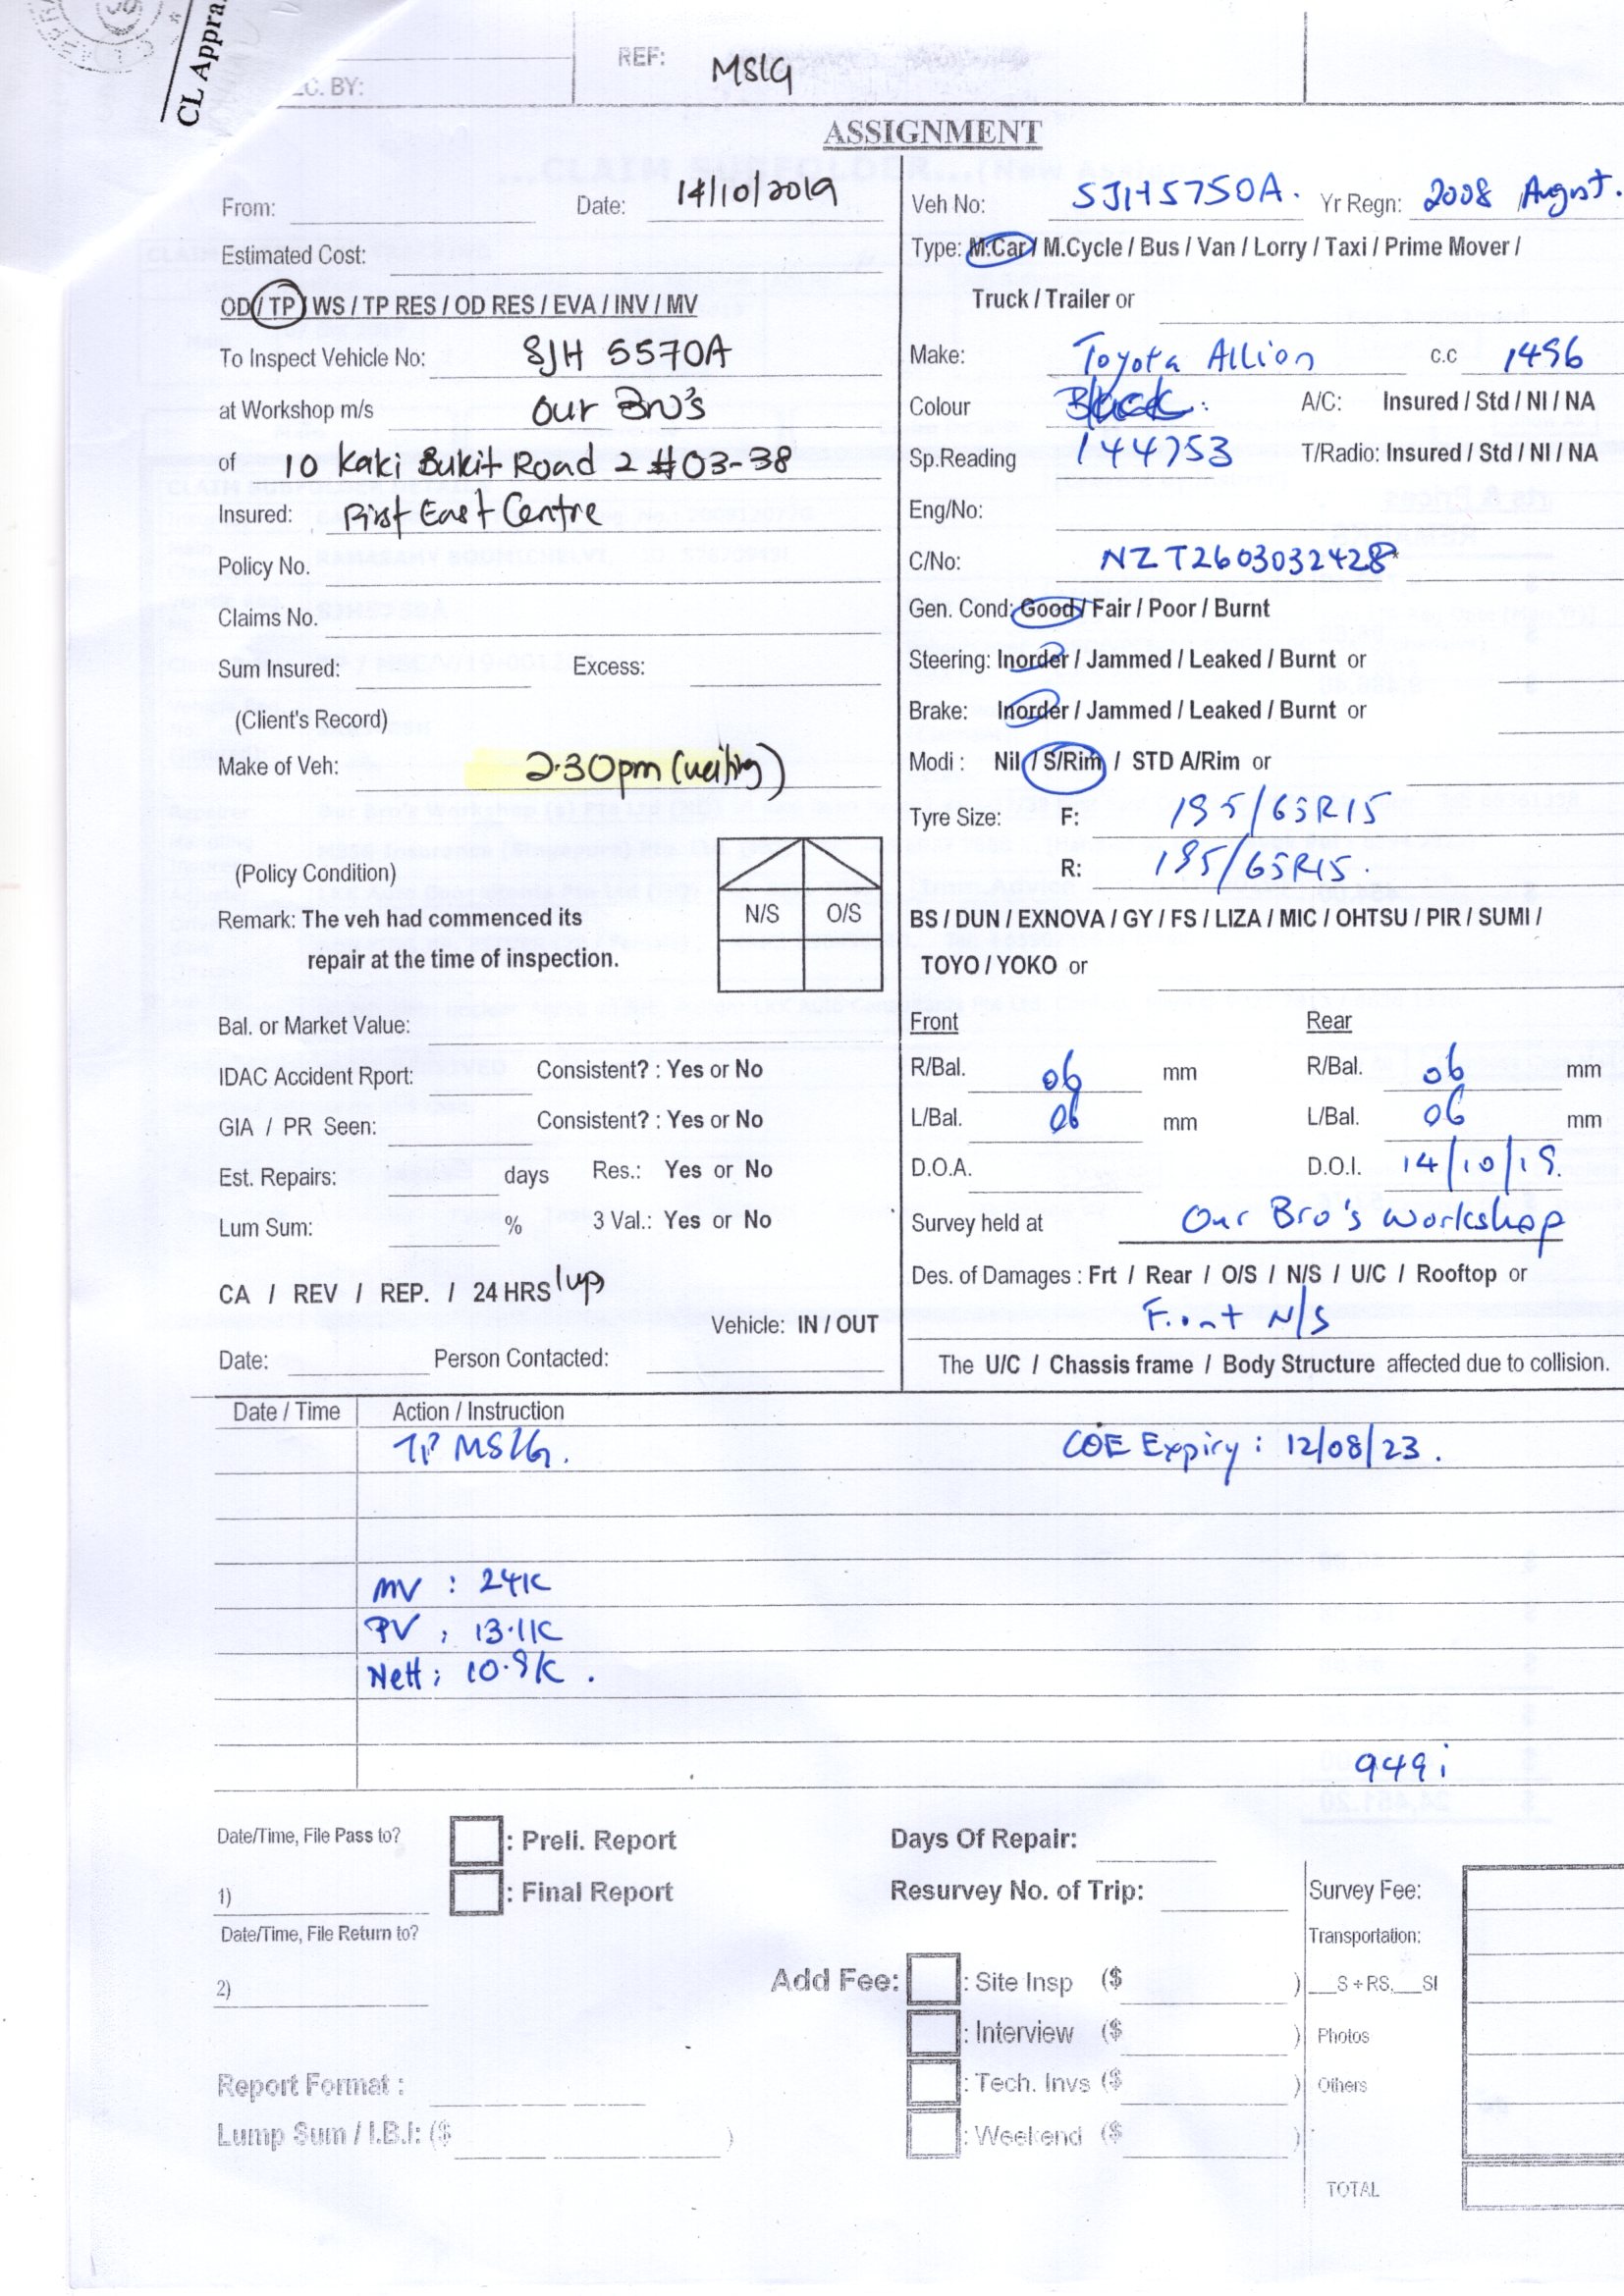 CL Appra
C. BY:
REF: MSIG
ASSIGNMENT
From: Date: 14/10/2019
Estimated Cost:
OD / TP / WS / TP RES / OD RES / EVA / INV / MV
To Inspect Vehicle No: SJH 5570A
at Workshop m/s Our Bro's
of 10 Kaki Bukit Road 2 #03-38
Insured: First East Centre
Policy No.
Claims No.
Sum Insured: Excess:
(Client's Record)
Make of Veh: 2.30pm (waiting)
(Policy Condition)
N/S O/S
Remark: The veh had commenced its
repair at the time of inspection.
Bal. or Market Value:
IDAC Accident Rport: Consistent? : Yes or No
GIA / PR Seen: Consistent? : Yes or No
Est. Repairs: days Res.: Yes or No
Lum Sum: % 3 Val.: Yes or No
CA / REV / REP. / 24 HRS
Vehicle: IN / OUT
Date: Person Contacted:
Veh No: SJH5750A. Yr Regn: 2008 / August.
Type: M.Car / M.Cycle / Bus / Van / Lorry / Taxi / Prime Mover /
Truck / Trailer or
Make: Toyota Allion c.c 1496
Colour Black. A/C: Insured / Std / NI / NA
Sp.Reading 144753 T/Radio: Insured / Std / NI / NA
Eng/No:
C/No: NZT2603032428*
Gen. Cond: Good / Fair / Poor / Burnt
Steering: Inorder / Jammed / Leaked / Burnt or
Brake: Inorder / Jammed / Leaked / Burnt or
Modi : Nil / S/Rim / STD A/Rim or
Tyre Size: F: 195/65R15
R: 195/65R15.
BS / DUN / EXNOVA / GY / FS / LIZA / MIC / OHTSU / PIR / SUMI /
TOYO / YOKO or
Front Rear
R/Bal. 06 mm R/Bal. 06 mm
L/Bal. 06 mm L/Bal. 06 mm
D.O.A. D.O.I. 14/10/19.
Survey held at Our Bro's Workshop
Des. of Damages : Frt / Rear / O/S / N/S / U/C / Rooftop or
Front N/S
The U/C / Chassis frame / Body Structure affected due to collision.
Date / Time Action / Instruction
TP MSIG. COE Expiry : 12/08/23.
MV : 24K
PV : 13.1K
Nett : 10.9K.
949i
Date/Time, File Pass to?
: Preli. Report
1)
: Final Report
Date/Time, File Return to?
2)
Report Format :
Lump Sum / I.B.I: ($ )
Days Of Repair:
Resurvey No. of Trip:
Add Fee: : Site Insp ($ )
: Interview ($ )
: Tech. Invs ($ )
: Weekend ($ )
Survey Fee:
Transportation:
__S + RS,__SI
Photos
Others
TOTAL